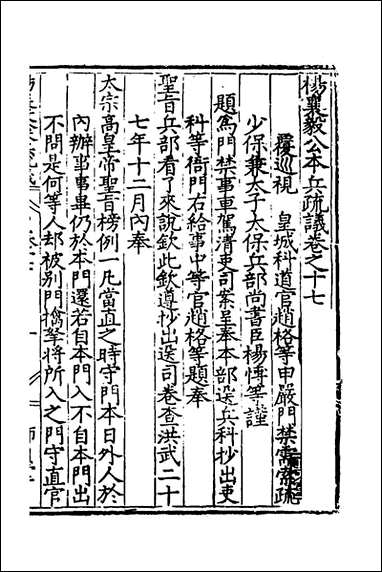 楊襄毅公本兵疏議卷之十七
覆巡視　皇城科道官趙格等申嚴門禁需索疏
少保兼太子太保兵部尚書臣楊　等謹
題爲門禁事車駕清吏司案呈奉本部送兵科抄出吏
科等衙門右給事中等官趙格等題奉
聖旨兵部看了來說欽此欽遵抄出送司卷查洪武二十
七年十二月內奉
太宗高皇帝聖旨榜例一凡當直之時守門本日外人於
內辦事事畢仍於本門還若自本門入不自本門出
不問是何等人却被別門擒拏將所入之門守直官